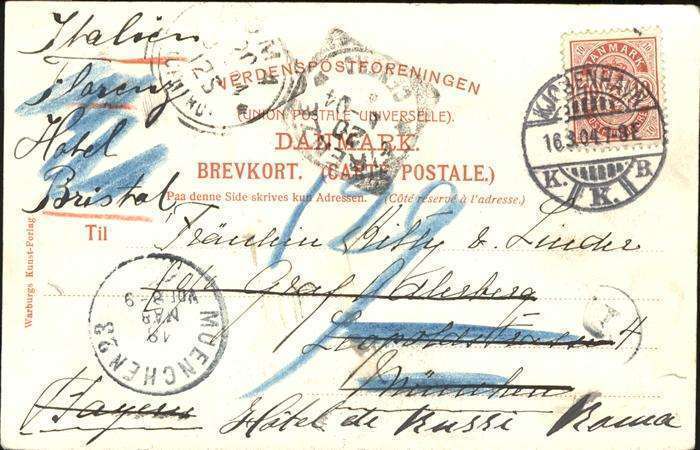 Italien
Florenz
Hotel
Bristol
VERDENSPOSTFORENINGEN
(UNION POSTALE UNIVERSELLE).
DANMARK.
BREVKORT. (CARTE POSTALE.)
Paa denne Side skrives kun Adressen. (Côté réservé à l'adresse.)
DANMARK
10 10
KJØBENHAVN
16.3.04.
K. K. B.
Warburgs Kunst-Forlag
Til
Fräulein Kitty v. Linder
Graf
Leopoldstrasse 4
München
Bayern
Hôtel de Russi Roma
MUENCHEN 23
18
MAR
VOR 8-9
129
ROMA